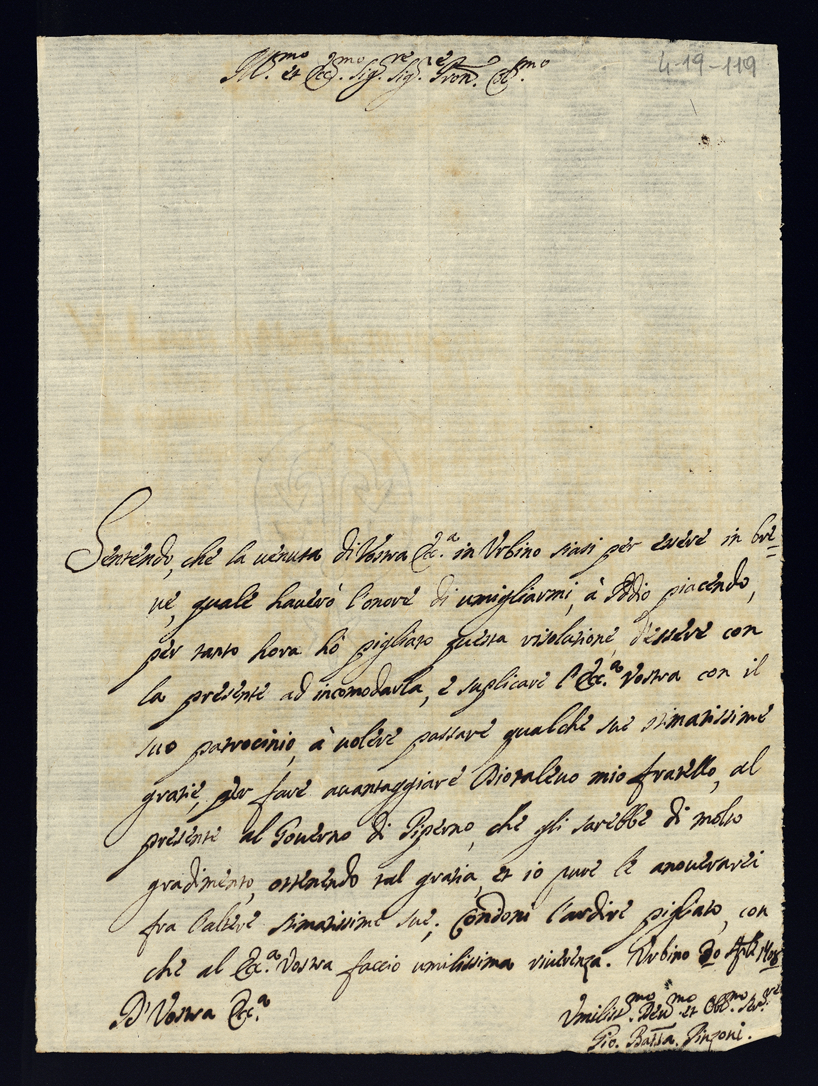 Ill.mo et Ecc.mo Sig.re Sig.re Pron. Col.mo
4-19-119
Sentendo, che la venuta di Vostra Ecc.a in Urbino siasi per essere in bre=
ve, quale haverò l'onore di umigliarmi, à Iddio piacendo,
per tanto hora hò pigliato questa risoluzione, d'essere con
la presente ad incomodarla, e suplicare l'Ecc.a Vostra con il
suo patrocinio, à volere passare qualche sue stimatissime
gratie, per fare avantaggiare Diotalevo mio fratello, al
presente al Governo di Piperno, che gli sarebbe di molto
gradimento, ottenendo tal gratia, et io pure le anoverarei
fra l'altre stimatissime sue; Condoni l'ardire pigliato, con
che al Ecc.a Vostra faccio umilissima riverenza. Urbino Aple
D' Vostra Ecc.a
Umiliss.mo Dev.mo et Obl.mo Ser.re
Gio. Batta. Pinzoni.